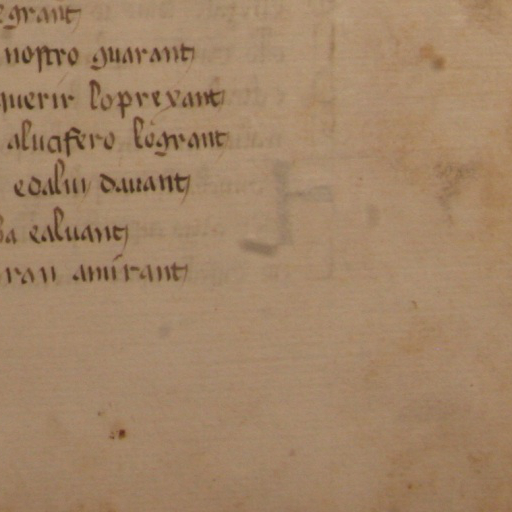 egrant
nostro guarant
querir loprexant
alucifero logrant
edalui dauant
ba ealuant
ran amirant